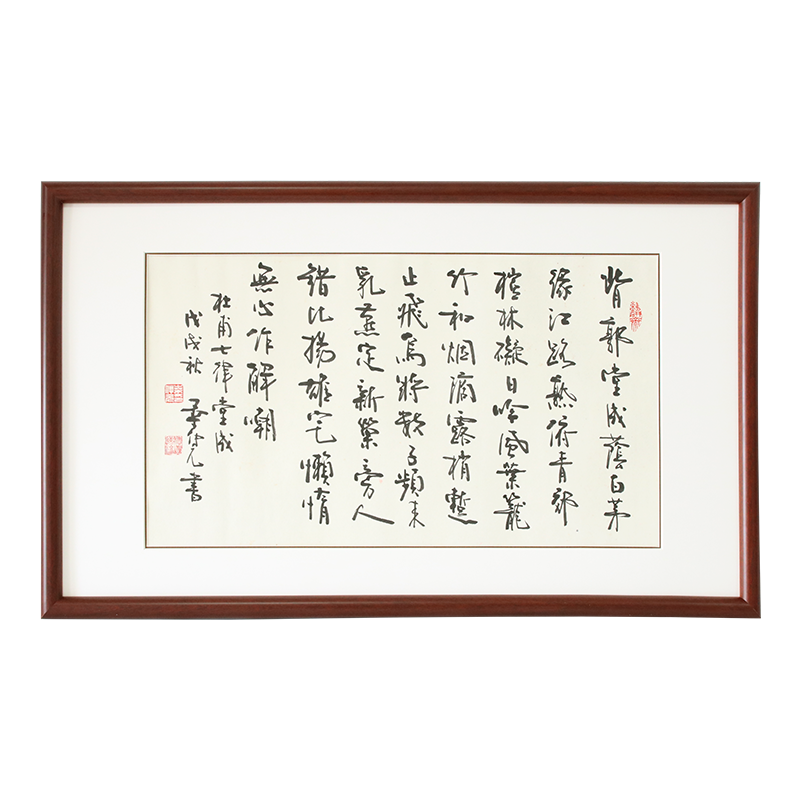 背郭堂成蔭白茅
緣江路熟俯青郊
榿林礙日吟風葉籠
竹和烟滴露梢暫
止飛烏將數子頻来
乳燕定新巢旁人
錯比揚雄宅懶惰
無心作解嘲
杜甫七律堂成
戊戌秋
元書